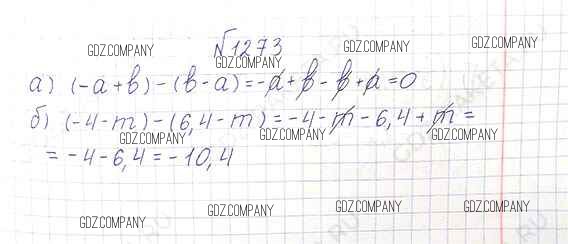 №1273
GDZ.COMPANY GDZ.COMPANY GDZ.COMPANY GDZ.COMPANY
а) (-a+b)-(b-a)=-a+b-b+a=0
б) (-4-m)-(6,4-m)=-4-m-6,4+m=
GDZ.COMPANY GDZ.COMPANY GDZ.COMPANY
=-4-6,4=-10,4
GDZ.COMPANY GDZ.COMPANY GDZ.COMPANY GDZ.COMPANY